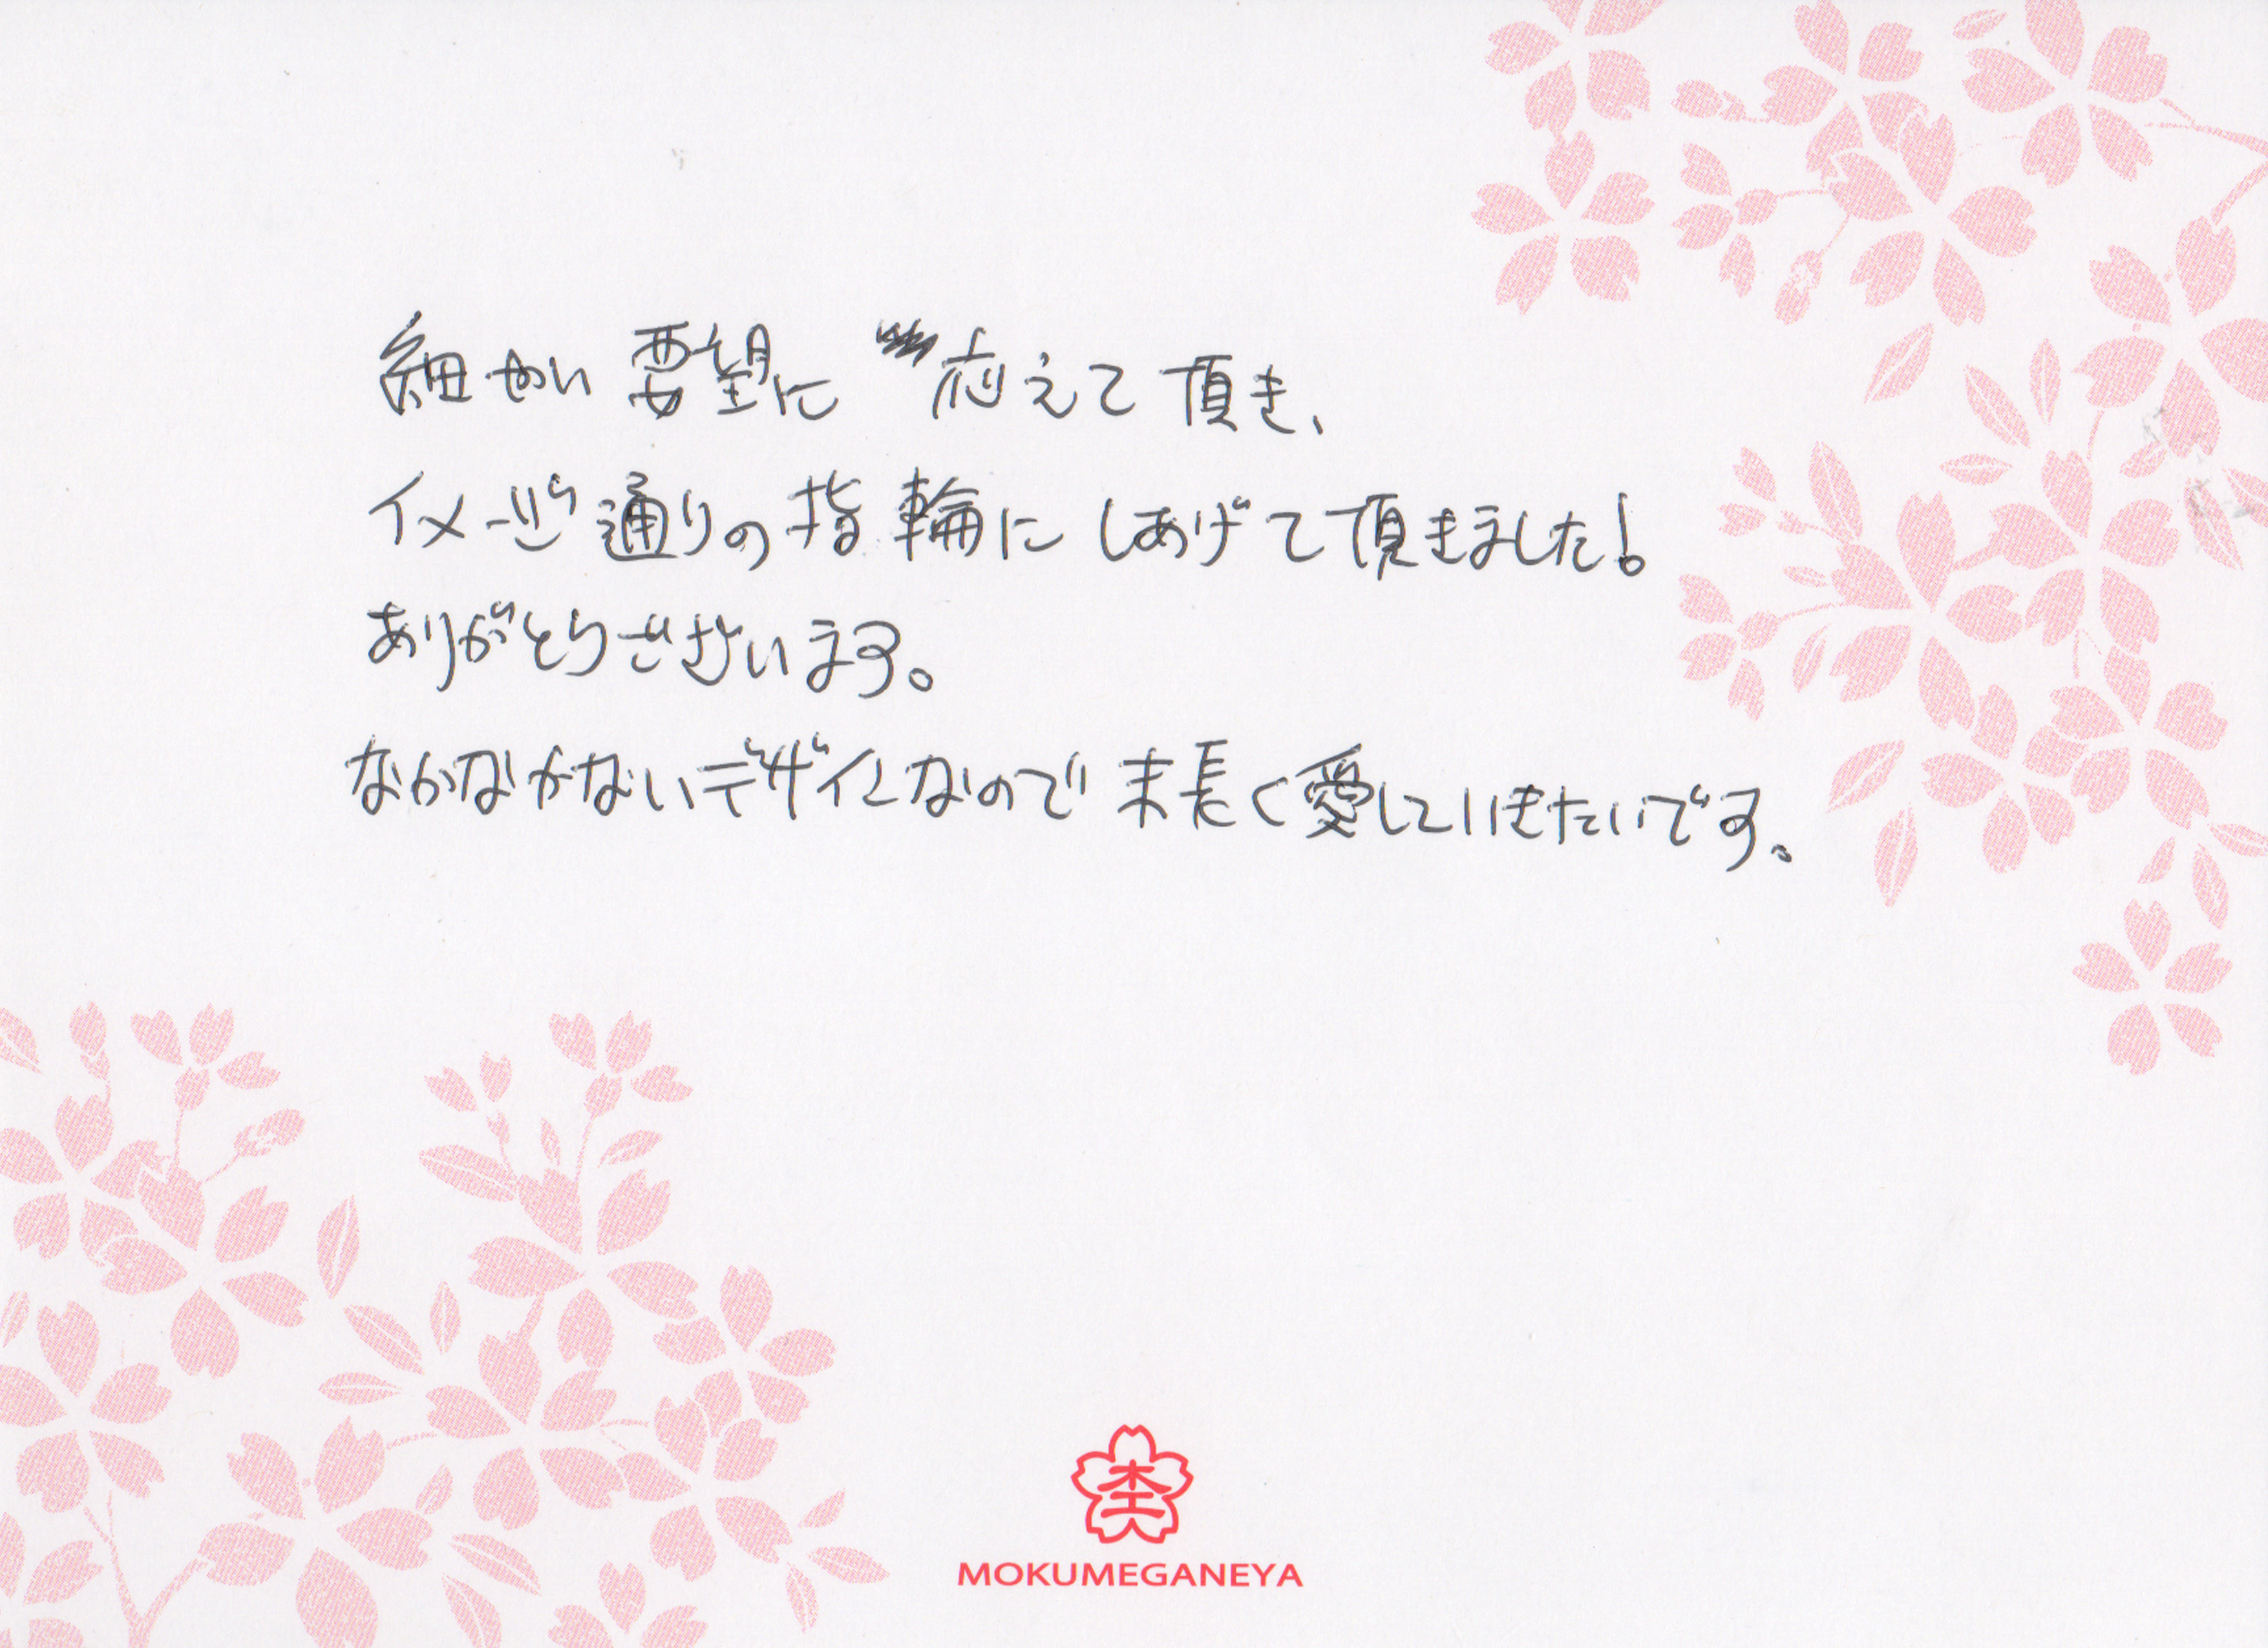 細かい要望に応えて頂き、
イメージ通りの指輪にしあげて頂きました!
ありがとうございます。
なかなかないデザインなので末長く愛していきたいです。
杢
MOKUMEGANEYA